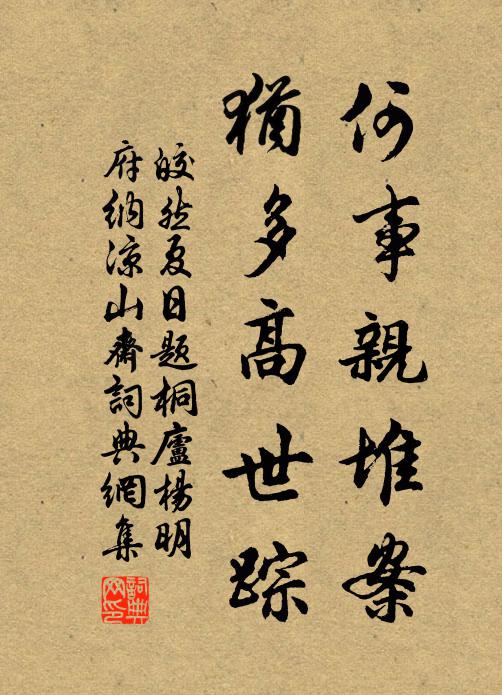 何事親堆案
猶多高世踪
皎然夏日題桐廬楊明
府納凉山齋詞典網集
詞典网印